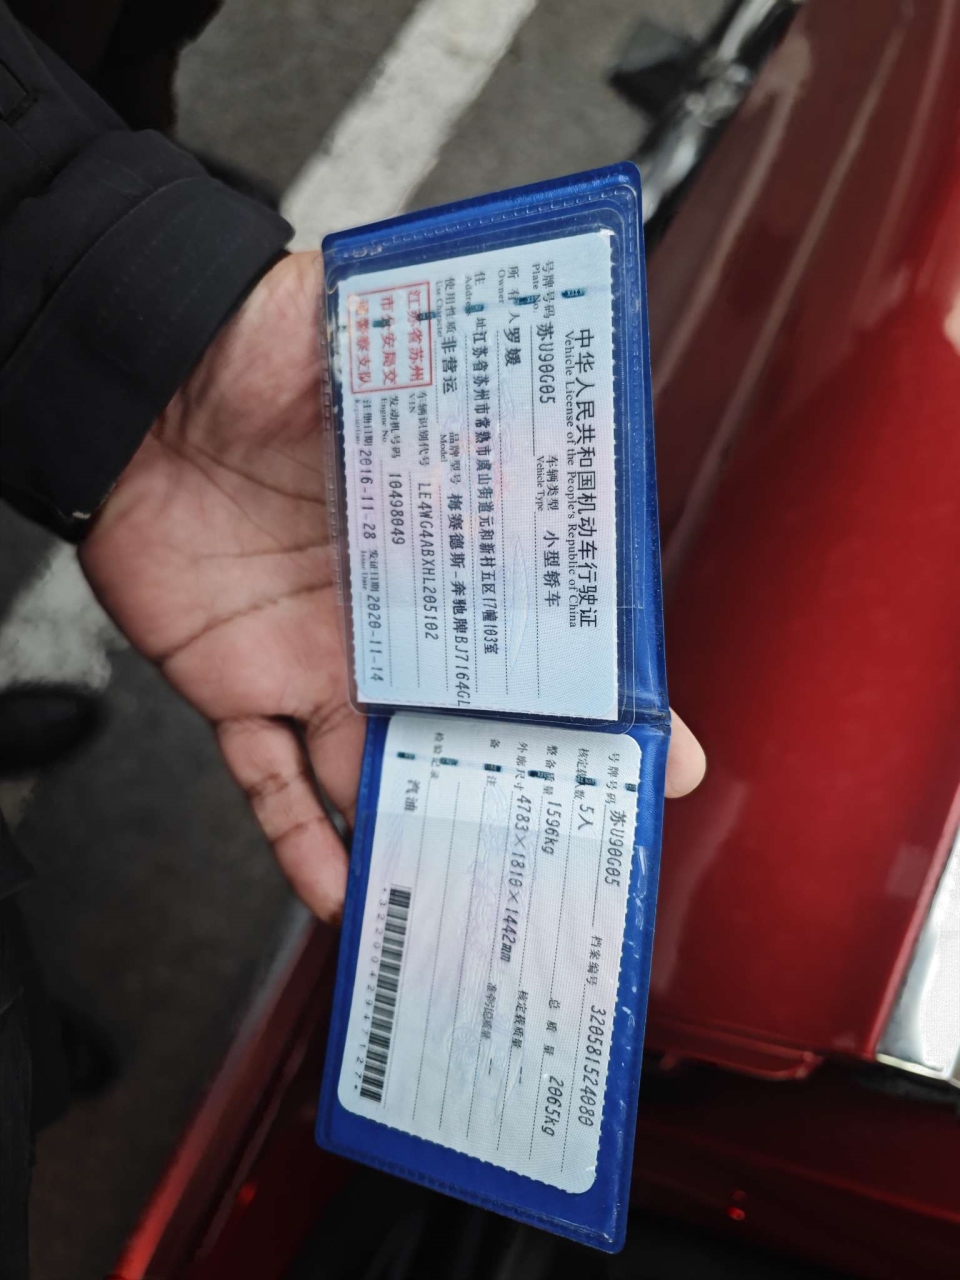 中华人民共和国机动车行驶证
Vehicle License of the People's Republic of China
号牌号码 苏U90G05 车辆类型 小型轿车
Plate No. Vehicle Type
所有人 罗媛
Owner
住址 江苏省苏州市常熟市虞山街道元和新村五区17幢103室
Address
使用性质 非营运 品牌型号 梅赛德斯-奔驰牌BJ7164GL
Use Character Model
江苏省苏州
市公安局交
警察支队
车辆识别代号 LE4WG4ABXHL205102
VIN
发动机号码 10498049
Engine No.
注册日期 2016-11-28 发证日期 2020-11-14
Register Date Issue Date
号牌号码 苏U90G05 档案编号 320581524080
核定载人数 5人 总质量 2065kg
整备质量 1596kg 核定载质量 --
外廓尺寸 4783×1810×1442mm 准牵引总质量 --
备注
检验记录
汽油
*3220042947127*